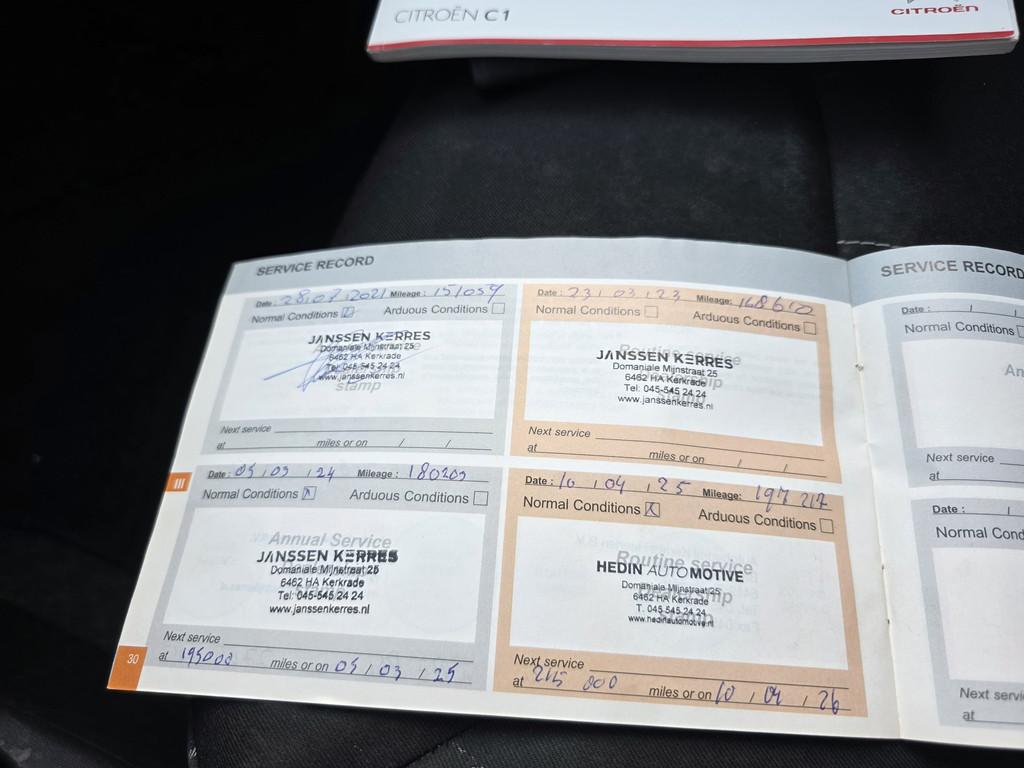 CITROËN C1
CITROËN
SERVICE RECORD
Date: 28/07/2021 Mileage: 151054
Normal Conditions Arduous Conditions
JANSSEN KERRES
Domaniale Mijnstraat 25
6462 HA Kerkrade
Tel: 045-545 24 24
www.janssenkerres.nl
stamp
Next service
at miles or on / /
Date: 23/03/23 Mileage:
Normal Conditions Arduous Conditions
Routine service
JANSSEN KERRES
Domaniale Mijnstraat 25
6462 HA Kerkrade
Tel: 045-545 24 24
www.janssenkerres.nl
Next service
at miles or on / /
III
Date: 05/03/24 Mileage: 180203
Normal Conditions X Arduous Conditions
Annual Service
JANSSEN KERRES
Domaniale Mijnstraat 25
6462 HA Kerkrade
Tel: 045-545 24 24
www.janssenkerres.nl
Next service
at 195000 miles or on 05/03/25
Date: 10/04/25 Mileage: 197 217
Normal Conditions X Arduous Conditions
Routine service
HEDIN AUTOMOTIVE
Domaniale Mijnstraat 25
6462 HA Kerkrade
T. 045 545 24 24
www.hedinautomotive.nl
Next service
at 215 000 miles or on 10/04/26
30
SERVICE RECORD
Date: / 
Normal Conditions
An
Next service
at
Date: / 
Normal Cond
Next servi
at